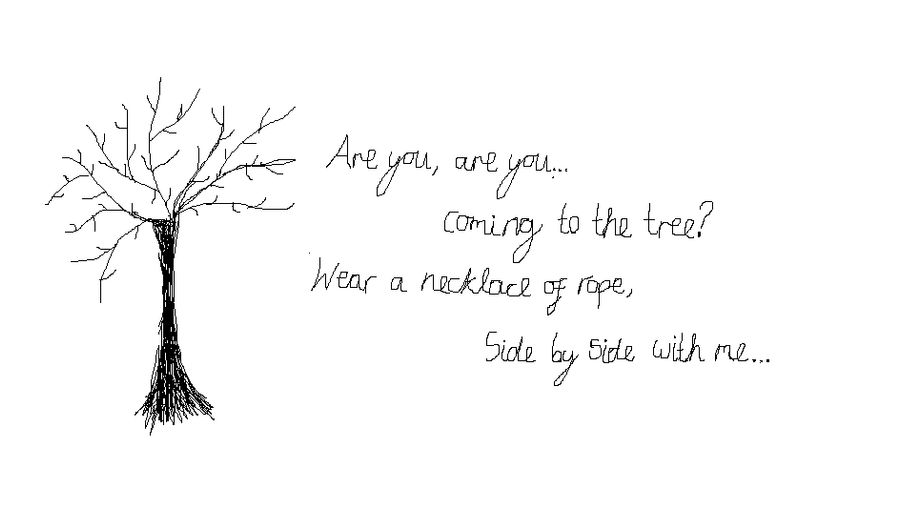 Are you, are you...
coming to the tree?
Wear a necklace of rope,
Side by side with me...